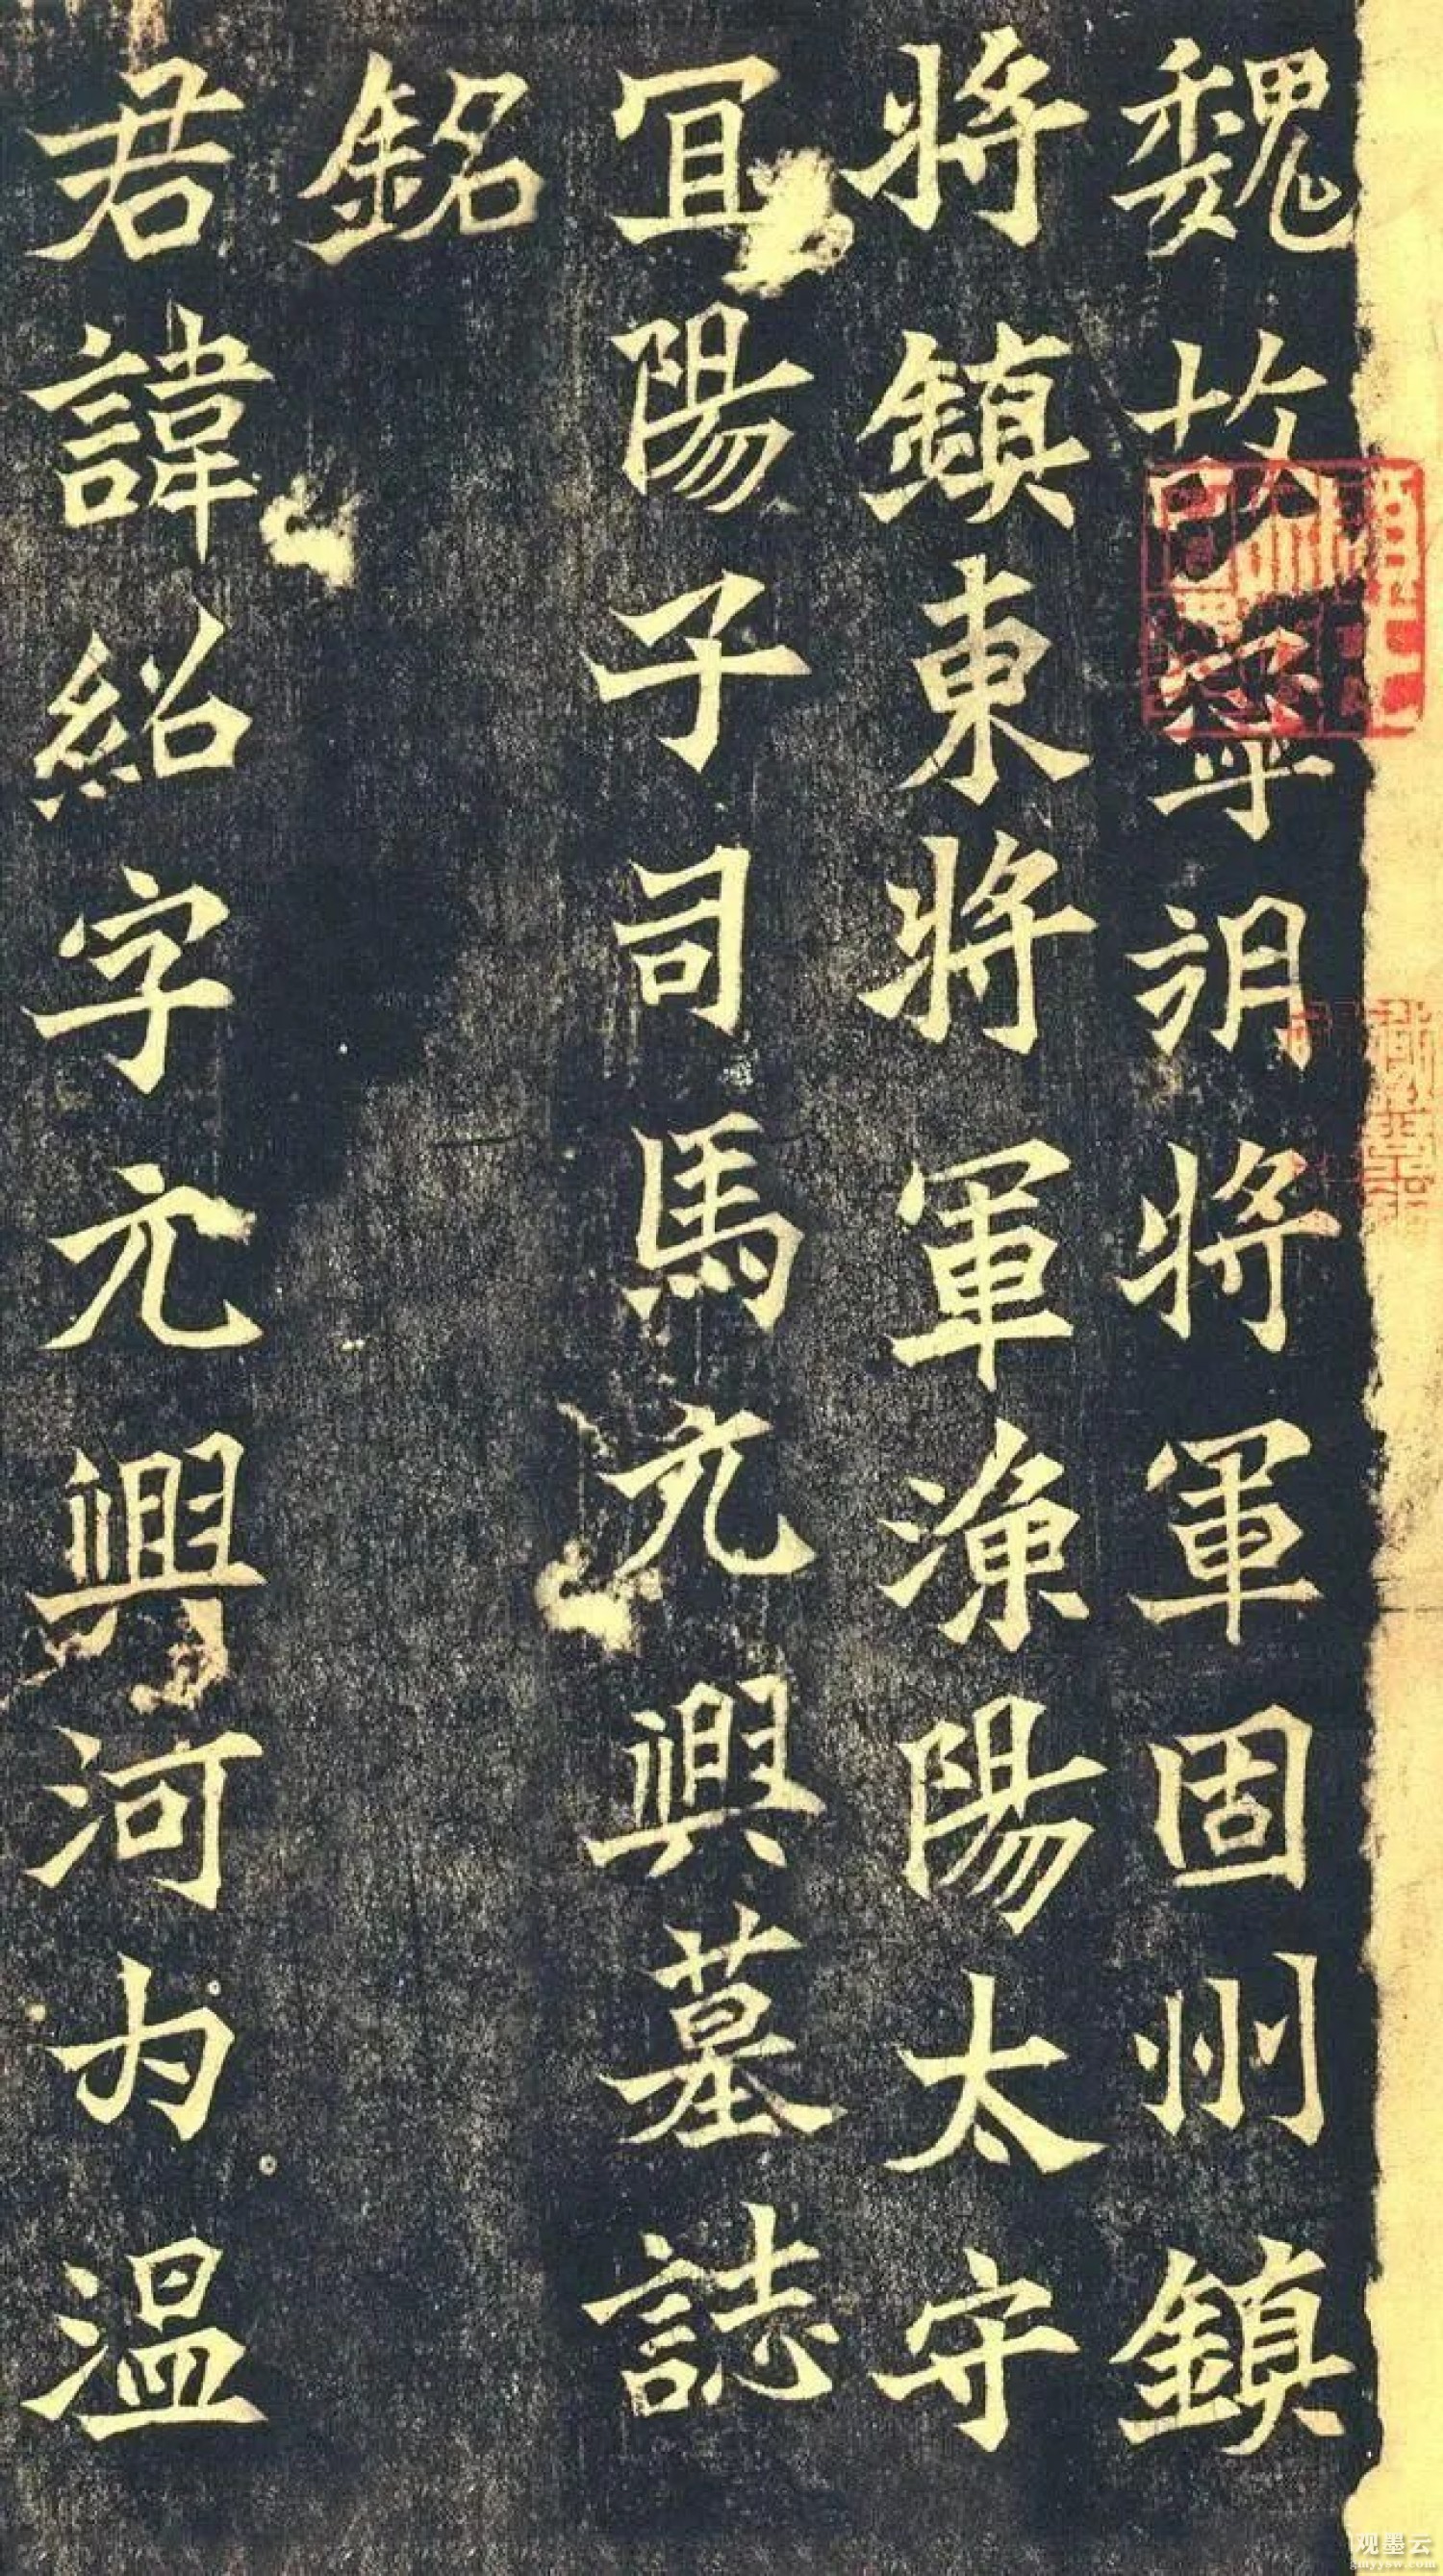 魏故寧朔將軍固州鎮
將鎮東將軍漁陽太守
宜陽子司馬元興墓誌
銘
君諱紹字元興河内溫
观墨云
gmyysw.com